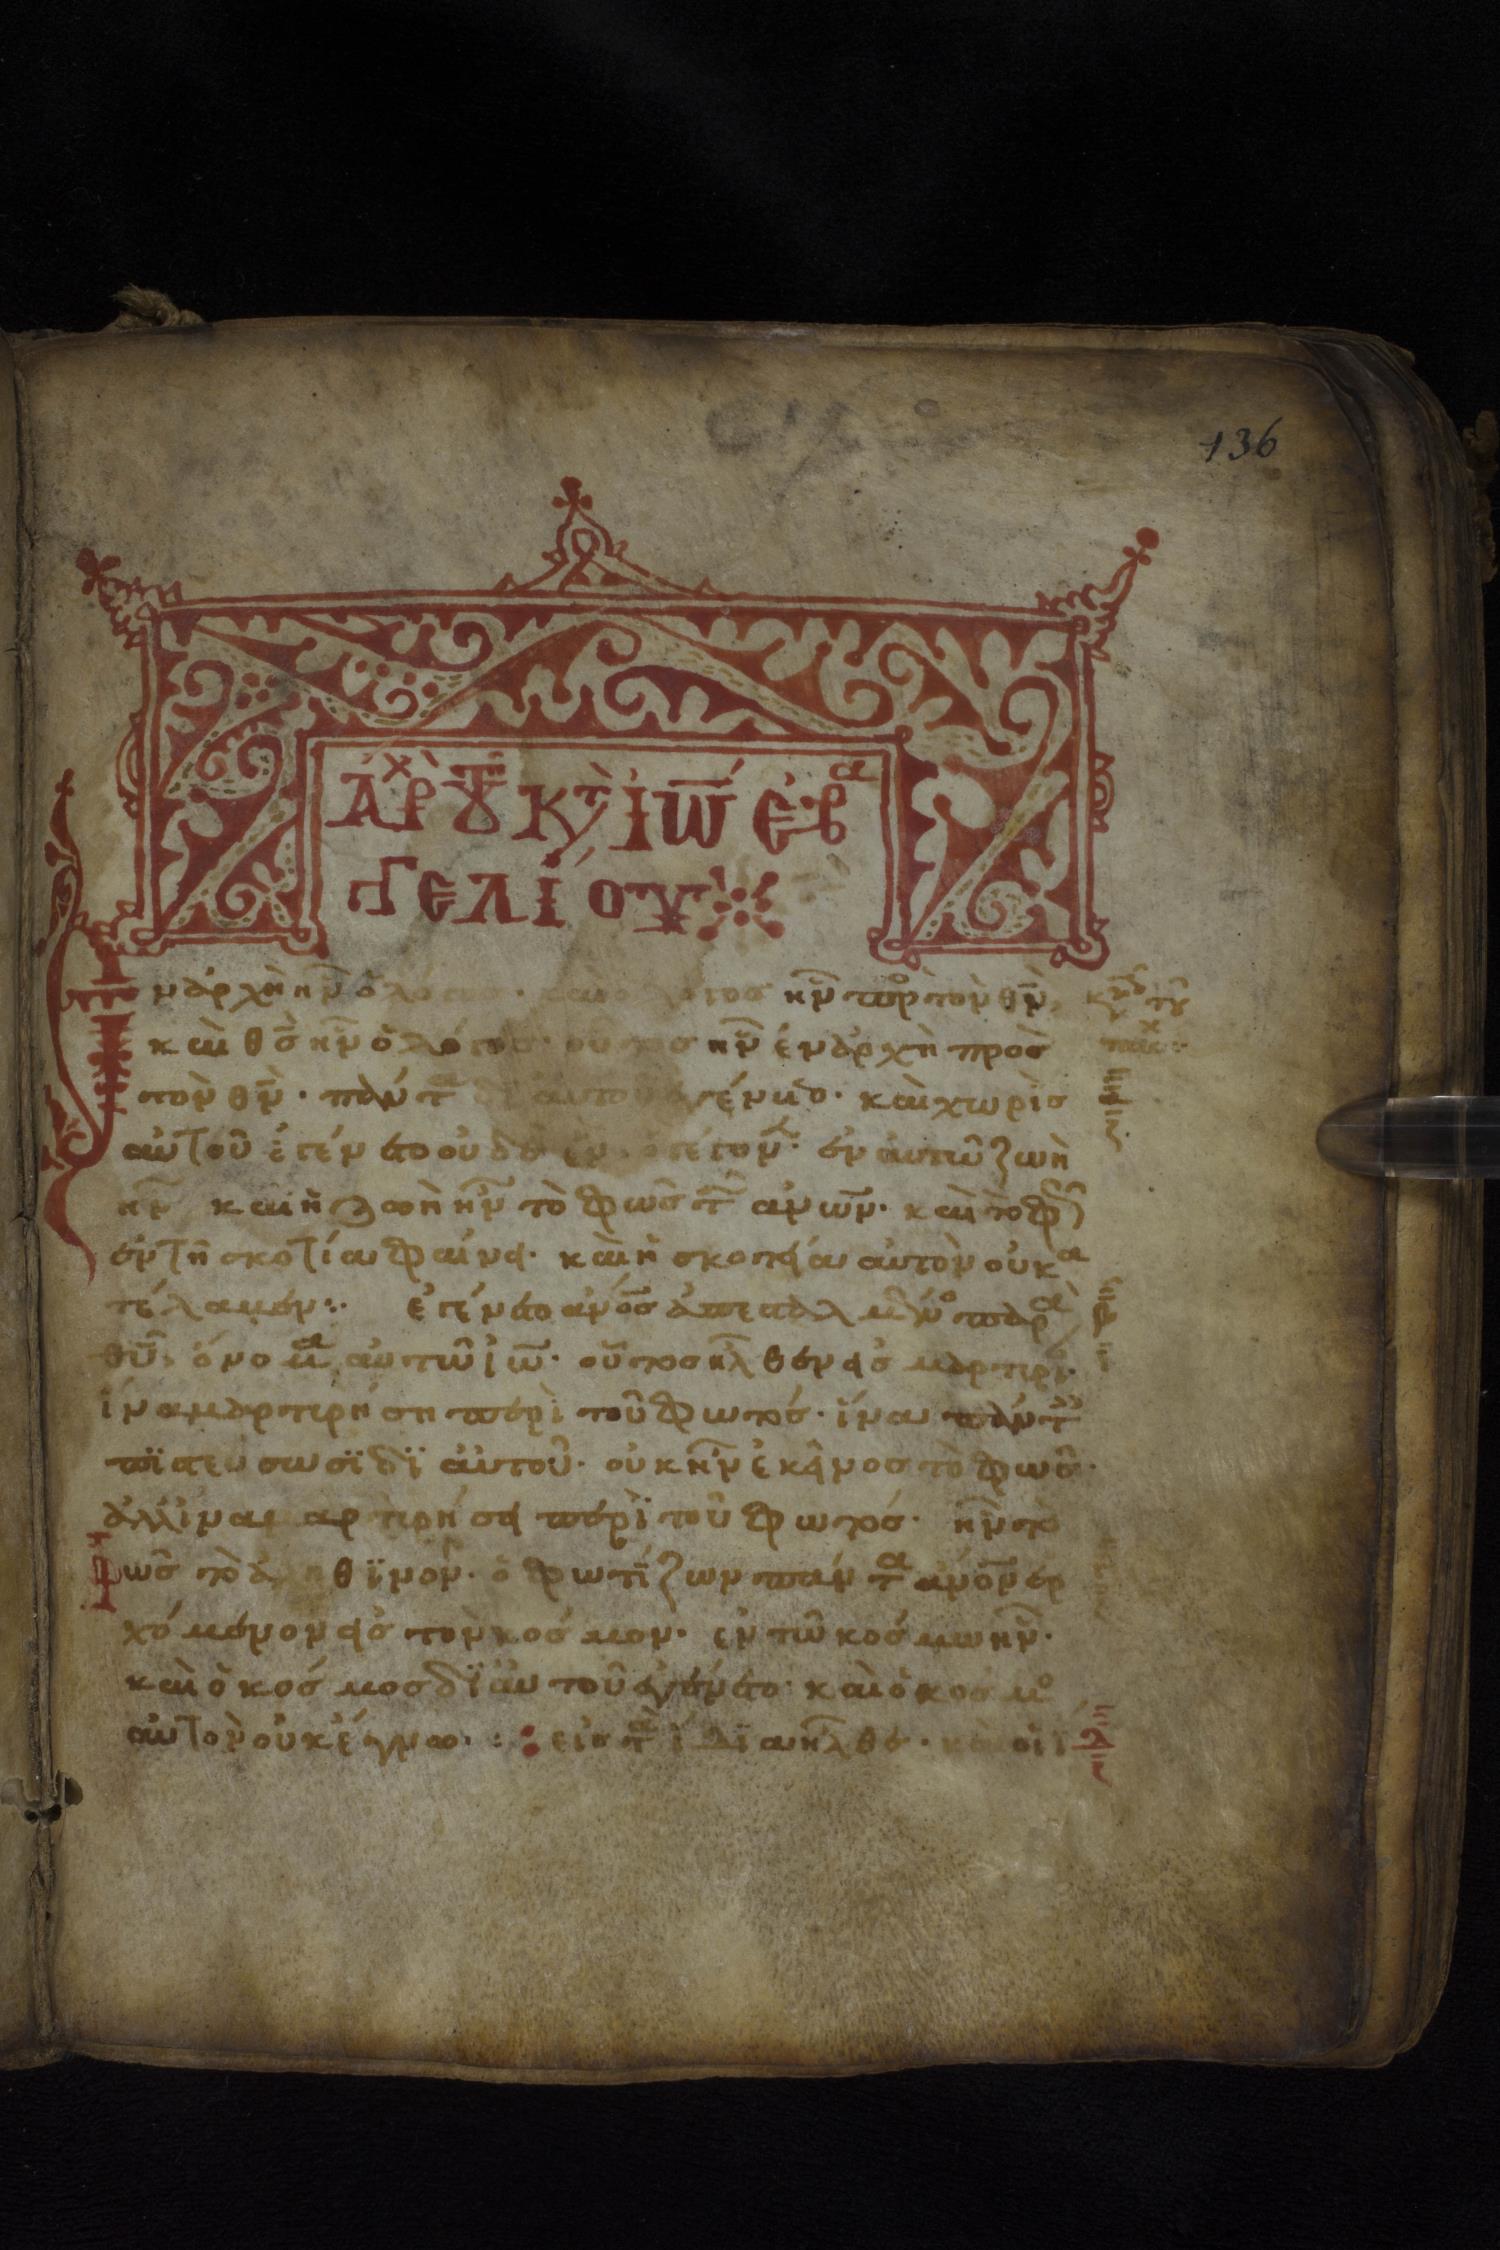 136
ἀρχ τοῦ κτ ἰω εὐα
γγελίου
Ἐν ἀρχὴ ἦν ὁ λόγος· καὶ ὁ λόγος ἦν πρ τὸν θν,
καὶ θς ἦν ὁ λόγος· οὗτος ἦν ἐν ἀρχὴ πρὸς
τὸν θν· πάντα δι αὐτοῦ ἐγένετο· καὶ χωρὶς
αὐτοῦ ἐγένετο οὐδὲ ἐν ὃ γέγονεν· ἐν αὐτῶ ζωὴ
ἦν καὶ ἡ ζωὴ ἦν τὸ φῶς τ ανων· καὶ τὸ φῶς
ἐν τῆ σκοτία φαίνει· καὶ ἡ σκοτία αὐτὸν οὐ κα
τέλαβεν:· ἐγένετο ανος ἀπεσταλμένο παρὰ
θυ, ὄνομα αὐτῶ ἰω· οὗτος ἦλθεν εἰς μαρτιρί·
ἵνα μαρτιρήση περὶ τοῦ φωτός· ἵνα πάντ
πϊστευσωσϊ δϊ αὐτοῦ· οὐκ ἦν ἐκεῖνος τὸ φῶς·
ἀλλ ἵνα μαρτιρήσει περὶ τοῦ φωτός· ἦν τὸ
φῶς τὸ ἀληθϊνόν· ὃ φωτίζων πάντα ανον ἐρ
χόμενον εἰς τὸν κόσμον· ἐν τῶ κόσμω ἦν·
καὶ ὁ κόσμος δϊ αὐτοῦ ἐγένετο· καὶ ὁ κόσμο
αὐτὸν οὐκ ἔγνω· : εἰς τὰ ἴδϊα ἦλθε· καὶ οἱ ἴ